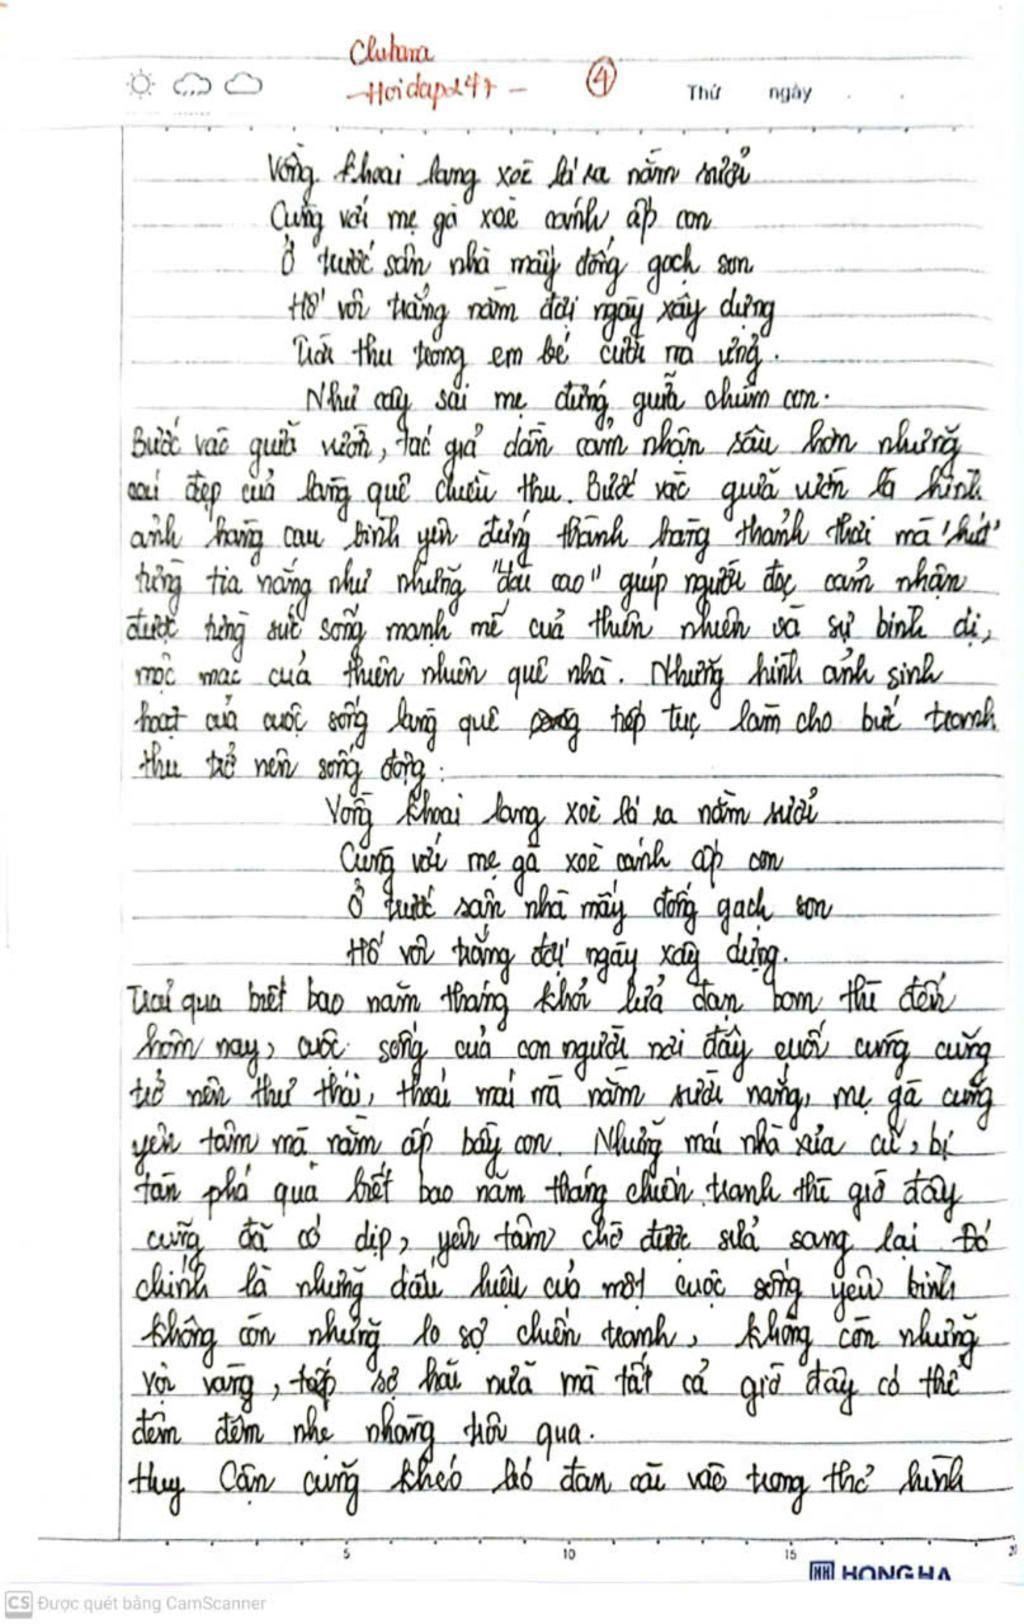 Cluhana
-Hoidap247-
4
Thứ ngày
Vồng khoai lang xoè lá ra nằm sưởi
Cùng với mẹ gà xoè cánh ấp con
Ở trước sân nhà mấy đống gạch son
Hố vôi trắng nằm đợi ngày xây dựng
Trời thu trong em bé cười má ửng.
Như cây sai mẹ đứng giữa chùm con.
Bước vào giữa vườn, tác giả dần cảm nhận sâu hơn những
cái đẹp của làng quê chiều thu. Bước vào giữa vườn là hình
ảnh hàng cau bình yên đứng thành hàng thảnh thơi mà "hút"
từng tia nắng như những "tàu cao" giúp người đọc cảm nhận
được từng sức sống mạnh mẽ của thiên nhiên và sự bình dị,
mộc mạc của thiên nhiên quê nhà. Những hình ảnh sinh
hoạt của cuộc sống làng quê tiếp tục làm cho bức tranh
thu trở nên sống động:
Vồng khoai lang xoè lá ra nằm sưởi
Cùng với mẹ gà xoè cánh ấp con
Ở trước sân nhà mấy đống gạch son
Hố vôi trắng đợi ngày xây dựng.
Trải qua biết bao năm tháng khói lửa đạn bom thì đến
hôm nay, cuộc sống của con người nơi đây cuối cùng cũng
trở nên thư thái, thoải mái mà nằm sưởi nắng, mẹ gà cũng
yên tâm mà nằm ấp bầy con. Những mái nhà xưa cũ, bị
tàn phá qua biết bao năm tháng chiến tranh thì giờ đây
cũng đã có dịp, yên tâm chờ được sửa sang lại. Đó
chính là những dấu hiệu của một cuộc sống yên bình
không còn những lo sợ chiến tranh, không còn những
vội vàng, sợ hãi nữa mà tất cả giờ đây có thể
đêm đêm nhẹ nhàng trôi qua.
Huy Cận cũng khéo léo đan cài vào trong thơ hình
5 10 15 20
HH HONG HA
CS Được quét bằng CamScanner